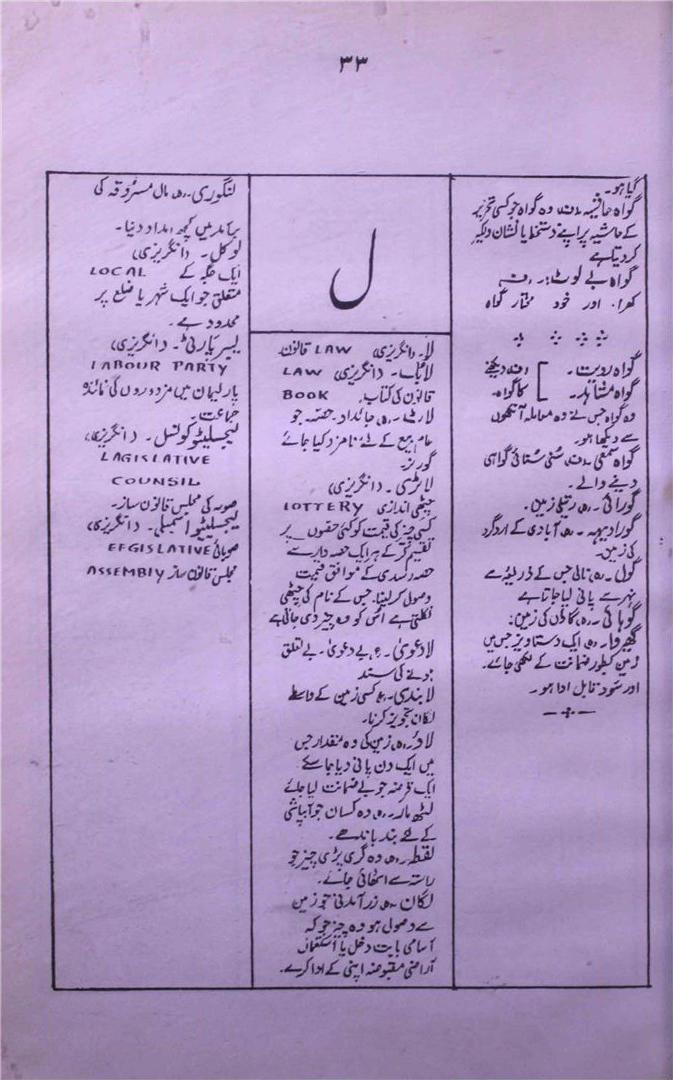 ۳۳
گیا ہو۔
گواہ حاشیہ۔ ف۔ وہ گواہ جو کسی تحریر
کے حاشیہ پر اپنے دستخط یا نشان دیگر
کر دیتا ہے
گواہ بے لوث:۔ ف
کھرا۔ اور خود مختار گواہ
گواہ رویت۔ ] ف۔ دیکھنے
گواہ مشاہد۔ ] کا گواہ۔
وہ گواہ جس نے وہ معاملہ آنکھوں
سے دیکھا ہو۔
گواہ سمعی۔ ف۔ سُنی سُنائی گواہی
دینے والے۔
گورائی۔ ہ۔ رتیلی زمین۔
گوراد یہہ۔ ہ۔ آبادی کے اردگرد
کی زمین۔
گول۔ ہ۔ نالی جس کے ذریعہ سے
نہر سے پانی لیا جاتا ہے
گوہانی۔ ہ۔ گاؤں کی زمین:
گھروا۔ ہ۔ ایک دستاویز جس میں
زمین بطور ضمانت کے لکھی جائے۔
اور سُود قابل ادا ہو۔
ل
لا۔ (انگریزی) LAW قانون
لا بُک۔ (انگریزی) LAW
BOOK قانون کی کتاب۔
لاٹ۔ ہ۔ جائداد۔ حصّہ۔ جو
عام بیع کے لئے نامزد کیا جائے
گورنر۔
لاٹری۔ (انگریزی)
LOTTERY چٹھی اندازی
کسی چیز کی قیمت کو کئی حصّوں پر
تقسیم کر کے ہر ایک حصہ دار سے
حصہ رسدی کے موافق قیمت
وصول کر لینا۔ جس کے نام کی چٹھی
نکلتی ہے اُس کو وہ چیز دی جاتی ہے
لا دعویٰ۔ ع۔ بے دعویٰ۔ بے تعلق
ہونے کی سند
لا بندی۔ ہ۔ کسی زمین کے واسطے
لگان تجویز کرنا۔
لاؤ۔ ہ۔ زمین کی وہ مقدار جس
میں ایک دن پانی دیا جا سکے
ایک قرضہ جو بے ضمانت لیا جائے
لٹھ مار۔ ہ۔ وہ کسان جو آبپاشی
کے لئے بند باندھے۔
لقطہ۔ ہ۔ وہ گری پڑی چیز جو
راستہ سے اٹھائی جائے۔
لگان۔ ہ۔ زر آمدنی جو زمین
سے وصول ہو وہ چیز جو کہ
آسامی بابت دخل یا استعمال
آراضی مقبوضہ اپنی کے ادا کرے۔
لنگوری۔ ہ۔ مال مسروقہ کی
برآمد میں کچھ امداد دینا۔
لوکل۔ (انگریزی)
LOCAL ایک جگہ کے
متعلق جو ایک شہر یا ضلع پر
محدود ہے۔
لیبر پارٹی۔ (انگریزی)
LABOUR PARTY
پارلیمان میں مزدوروں کی نمائندہ
جماعت۔
لیجسلیٹو کونسل۔ (انگریزی)
LAGISLATIVE
COUNSIL
صوبہ کی مجلس قانون ساز۔
لیجسلیٹو اسمبلی۔ (انگریزی)
EFGISLATIVE صوبائی
ASSEMBLY مجلس قانون ساز